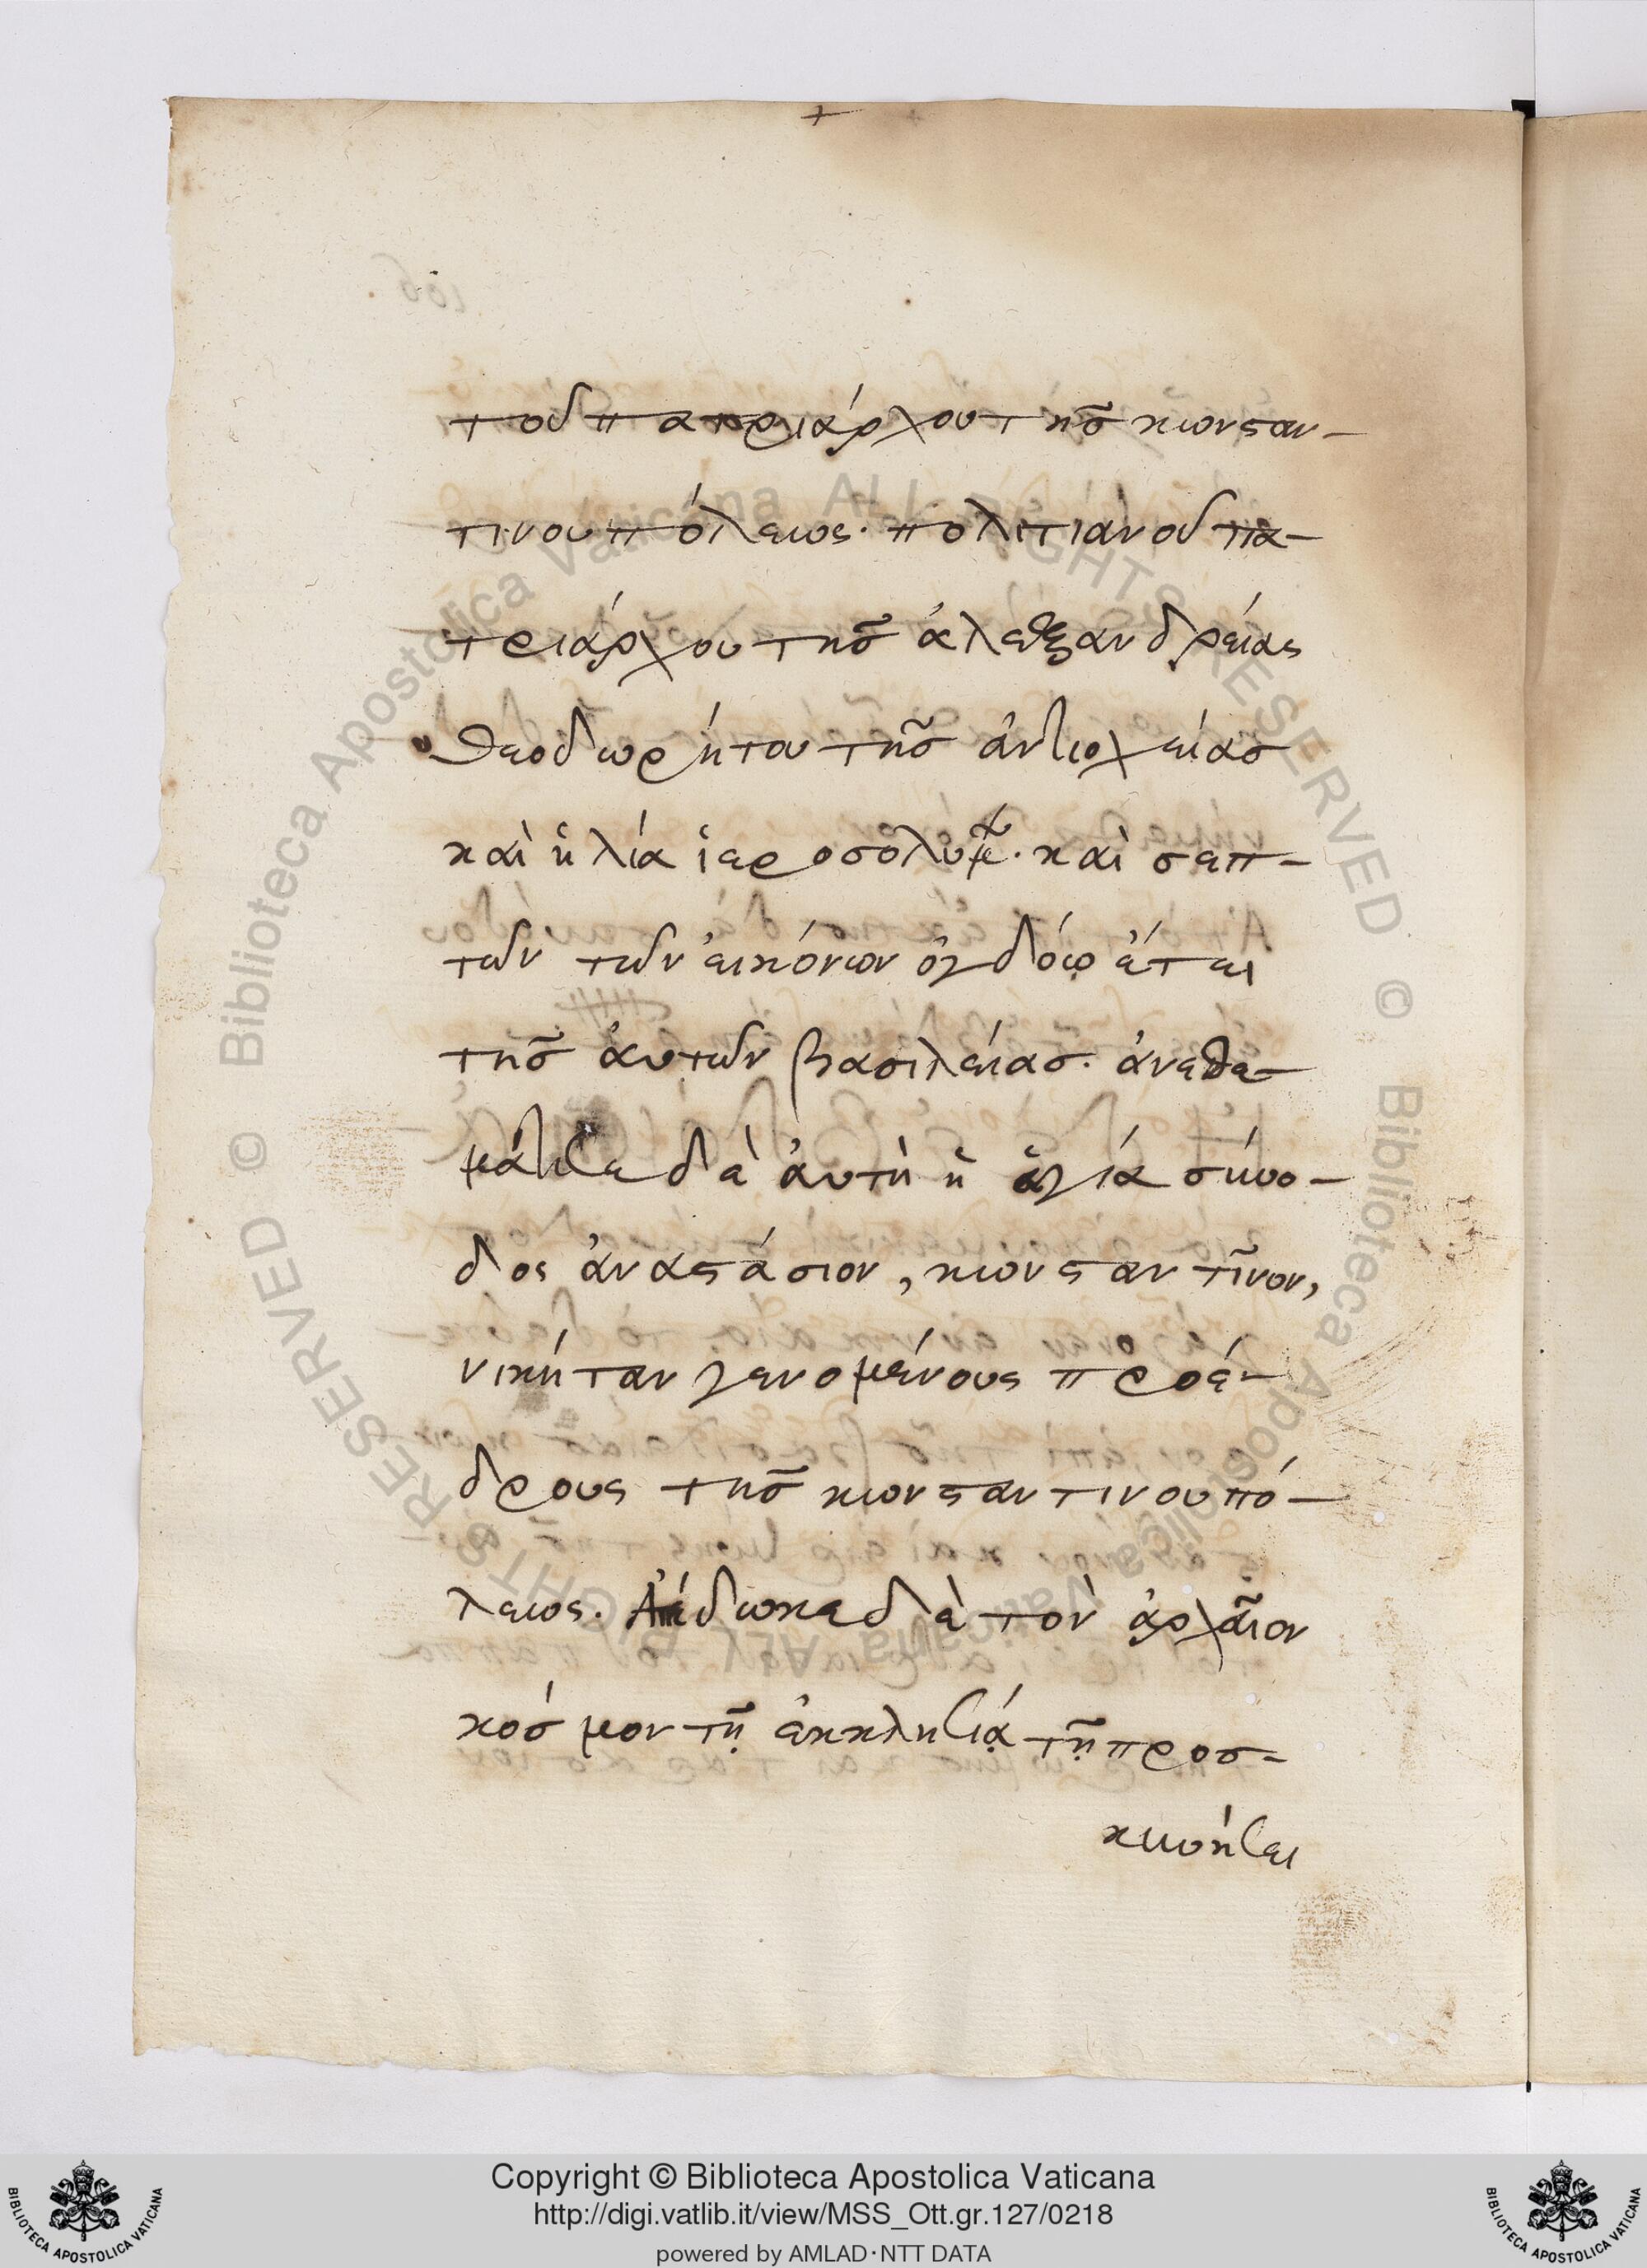 τοῦ πατριάρχου τῆς κωνσταν-
τινουπόλεως. πολιτιανοῦ πα-
τριάρχου τῆς ἀλεξανδρείας
θεοδωρήτου τῆς ἀντιοχείας
καὶ ἡλία ἱεροσολύμων. καὶ σεπ-
τῶν τῶν εἰκόνων ὀγδόῳ ἔτει
τῆς αὐτῶν βασιλείας. ἀνεθε-
μάτισε δὲ αὐτὴ ἡ ἁγία σύνο-
δος ἀναστάσιον, κωνσταντῖνον,
νικήταν γενομένους προέ-
δρους τῆς κωνσταντινουπό-
λεως. Ἀπέδωκε δὲ τὸν ἀρχαῖον
κόσμον τῇ ἐκκλησίᾳ τῇ προσ-
κυνήσει
Copyright © Biblioteca Apostolica Vaticana
http://digi.vatlib.it/view/MSS_Ott.gr.127/0218
powered by AMLAD·NTT DATA
BIBLIOTECA APOSTOLICA VATICANA
BIBLIOTECA APOSTOLICA VATICANA
© Biblioteca Apostolica Vaticana ALL RIGHTS RESERVED
© Biblioteca Apostolica Vaticana ALL RIGHTS RESERVED